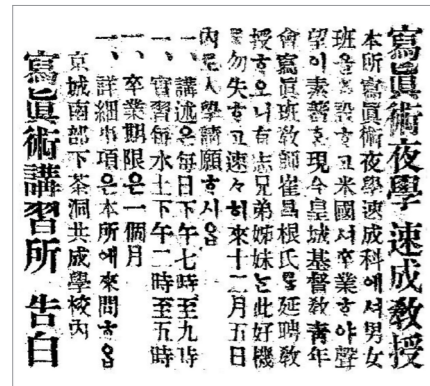 寫眞術夜學 速成敎授
本所寫眞術夜學速成科에셔男女
班을設ᄒᆞ고米國셔卒業ᄒᆞ야聲
望이素著ᄒᆞᆫ現今皇城基督敎靑年
會寫眞班敎師崔昌根氏를延聘敎
授ᄒᆞ오니有志兄弟姊妹는此好機
를勿失ᄒᆞ고速々히來十二月五日
內로入學請願ᄒᆞ시ᄋᆞᆸ
一、講述은每日下午七時至九時
一、實習每水土下午二時至五時
一、卒業期限은一個月
一、詳細事項은本所에來問ᄒᆞᄋᆞᆸ
京城南部下茶洞共成學校內
寫眞術講習所 告白